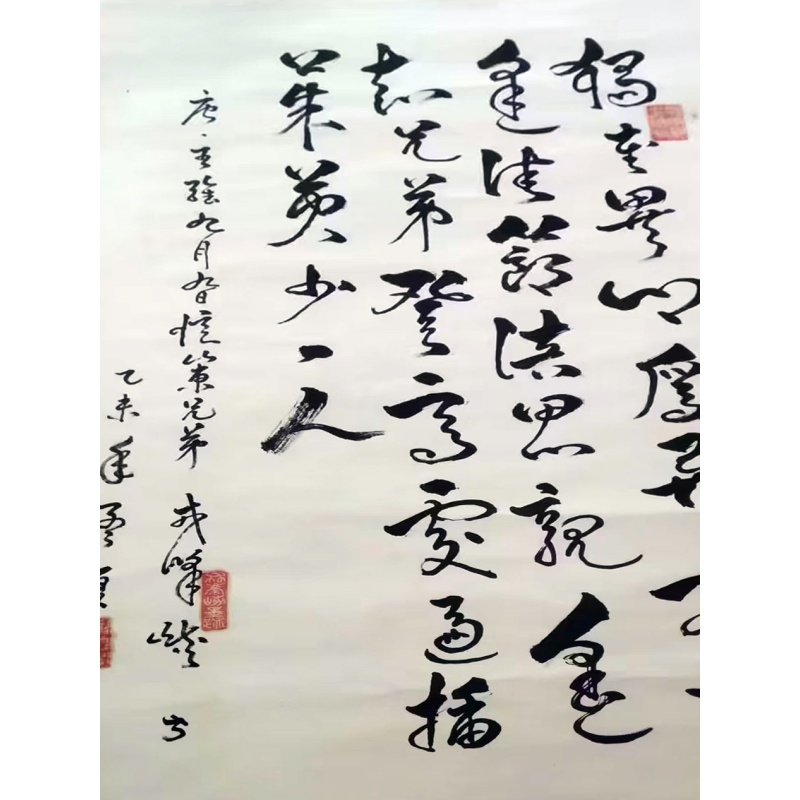 獨在異鄉為異
逢佳節倍思親遙
知兄弟登高處遍插
茱萸少一人
唐·王維九月九日憶山東兄弟 峰 書
乙未年夏